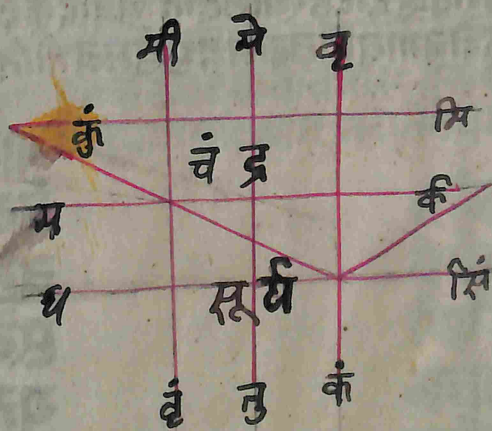 मी मे वृ
कुं मि
चं द्र
म र्क
ध सूर्य सिं
वृं तु कं